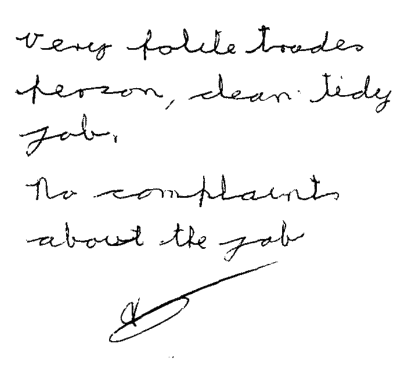 Very polite trades
person, clean tidy
job.
No complaints
about the job